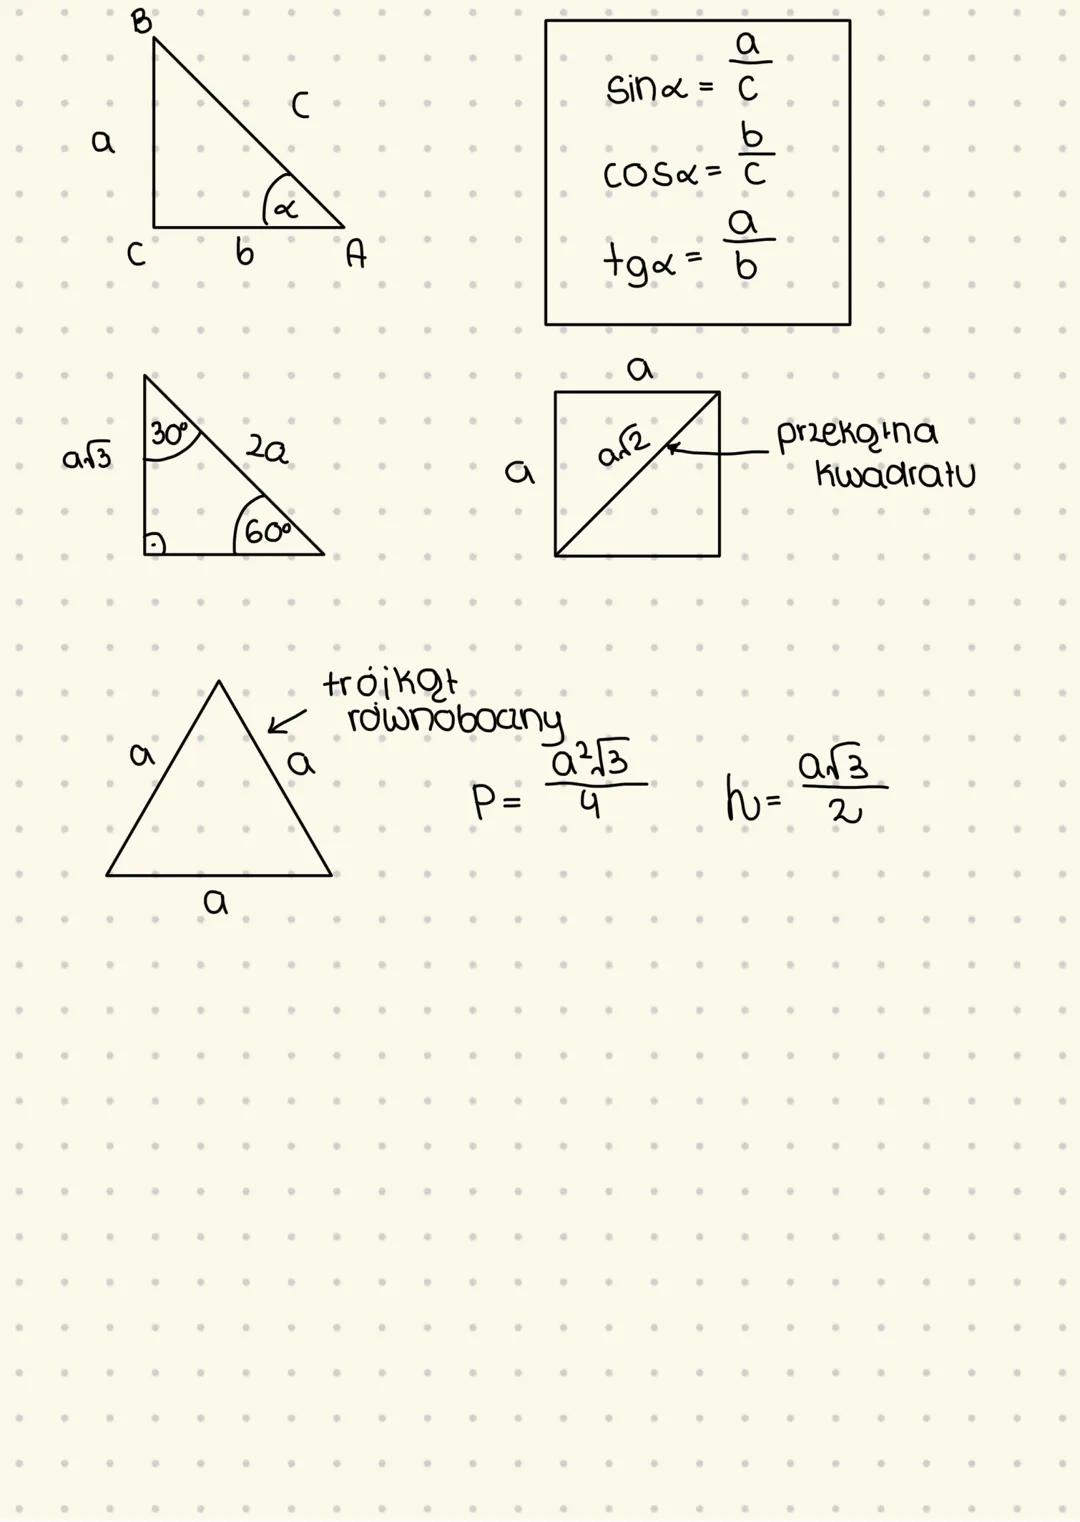 B
a
c
α
C
b
A
sinα = a/c
cosα = b/c
tgα = a/b
a√3
30°
2a
60°
a
a
a√2
przekątna
kwadratu
trójkąt
równoboczny
a
a
a
P = a²√3/4
h = a√3/2